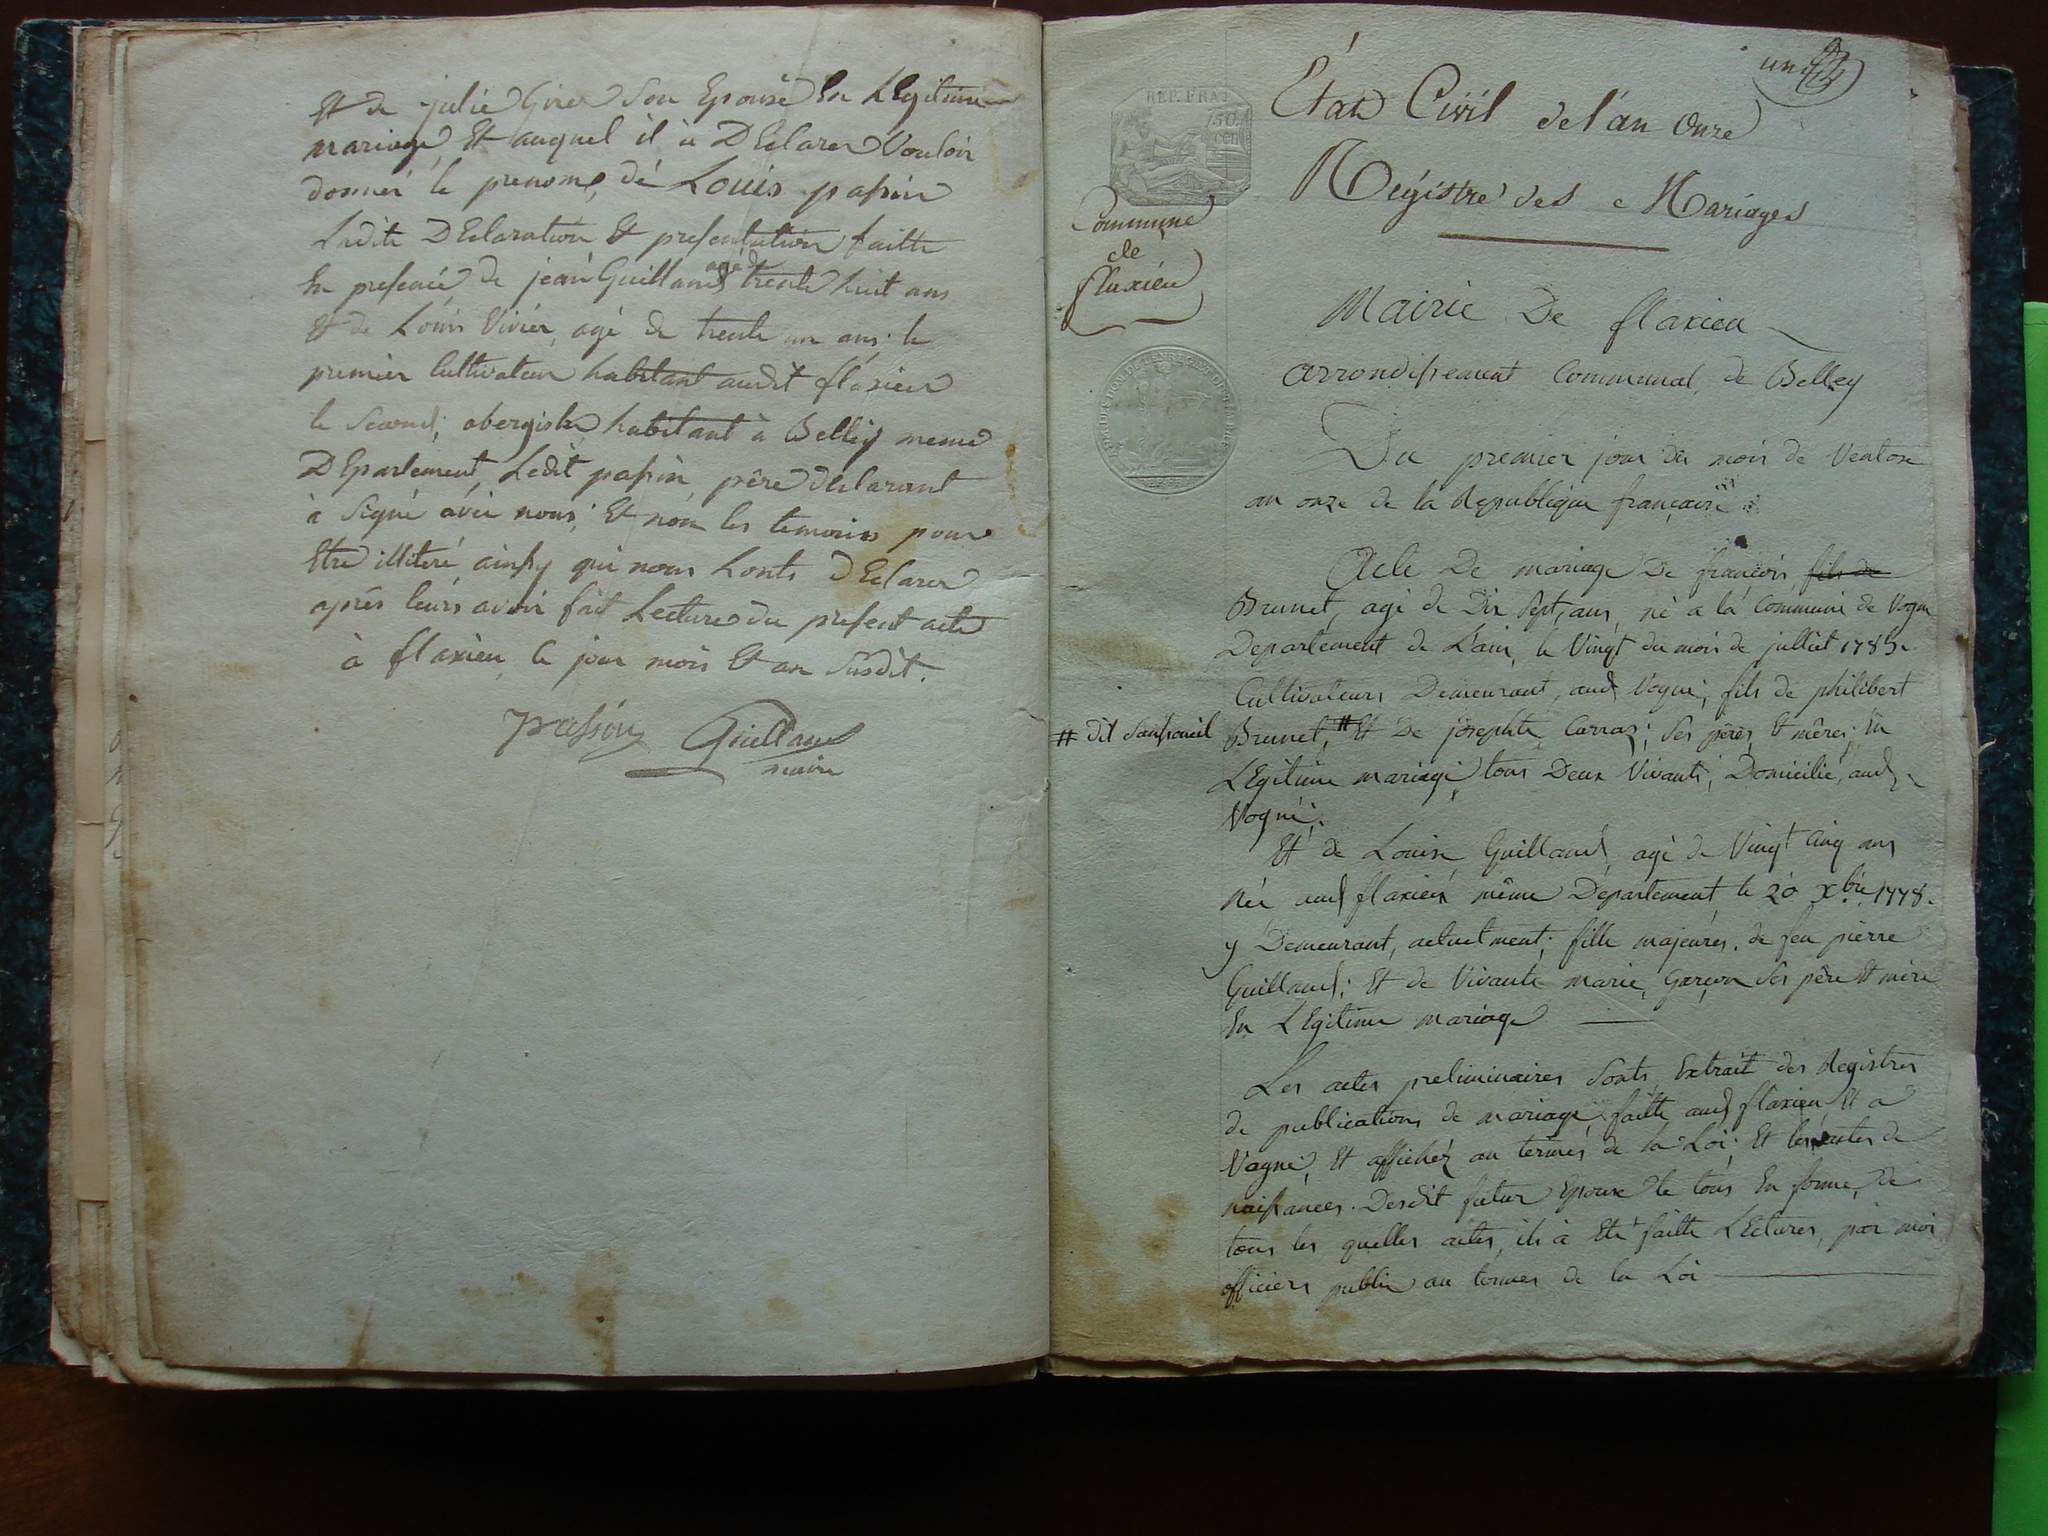 Et de julie Girer Son Epouse En LEgitime
mariage Et auquel il à DEclarer Vouloir
donner le prenoms de Louis passin
Ladite DEclaration Et presentation faitte
En presence de jean Guilland agé de trente huit ans
Et de Louis Vivier, agé de trente un ans; le
premier Cultivateur habitant audit flaxieu
le Second; obergiste habitant à Belley meme
DEpartement, Ledit passin père declarant
à Signé avec nous; Et non les temoins pour
Etre illiteré ainsy qui nous honts dEclarer
après leurs avoir fait Lecture du present acte
à flaxieu le jour mois Et an Susdit.
passin Guilland
maire
un
État Civil de l'an Onze
Régistre des Mariages
REP. FRA
50
CEN
Commune
de
flaxieu
Mairie De flaxieu
arrondissement Communal de Belley
Du premier jour du mois de Ventose
an onze de la Republique française
Acte De mariage De francois fils de
Brunet, agé de Dix Sept, ans, né a la Commune de Vogne
Departement de L'ain, le Vingt du mois de julliet 1785.
Cultivateurs Demeurant, aud Vogne; fils de philibert
# dit
Brunet, # Et De josephte Carraz; Ses pères Et mères; En
LEgitime mariage tous Deux Vivants; Domicilié, aud
Vogné.
Et de Louise Guilland agé de Vingt Cinq ans
née aud flaxieu même Département le 20 Xbre 1778.
y Demeurant, actuelment; fille majeures. de feu pierre
Guilland; Et de Vivante marie Garçon Ses père Et mère
En LEgitime mariage
Les actes preliminaires Sonts Extrait des Registres
de publications de mariage faitte aud flaxieu Et a
Vogné, Et affichéz au termes de la Loi; Et les actes de
naissances. Desdit futur Epoux le tous En forme, de
tous les quelles actes, ils à Eté faitte LEctures, par moi
officiers public au termes de la Loi